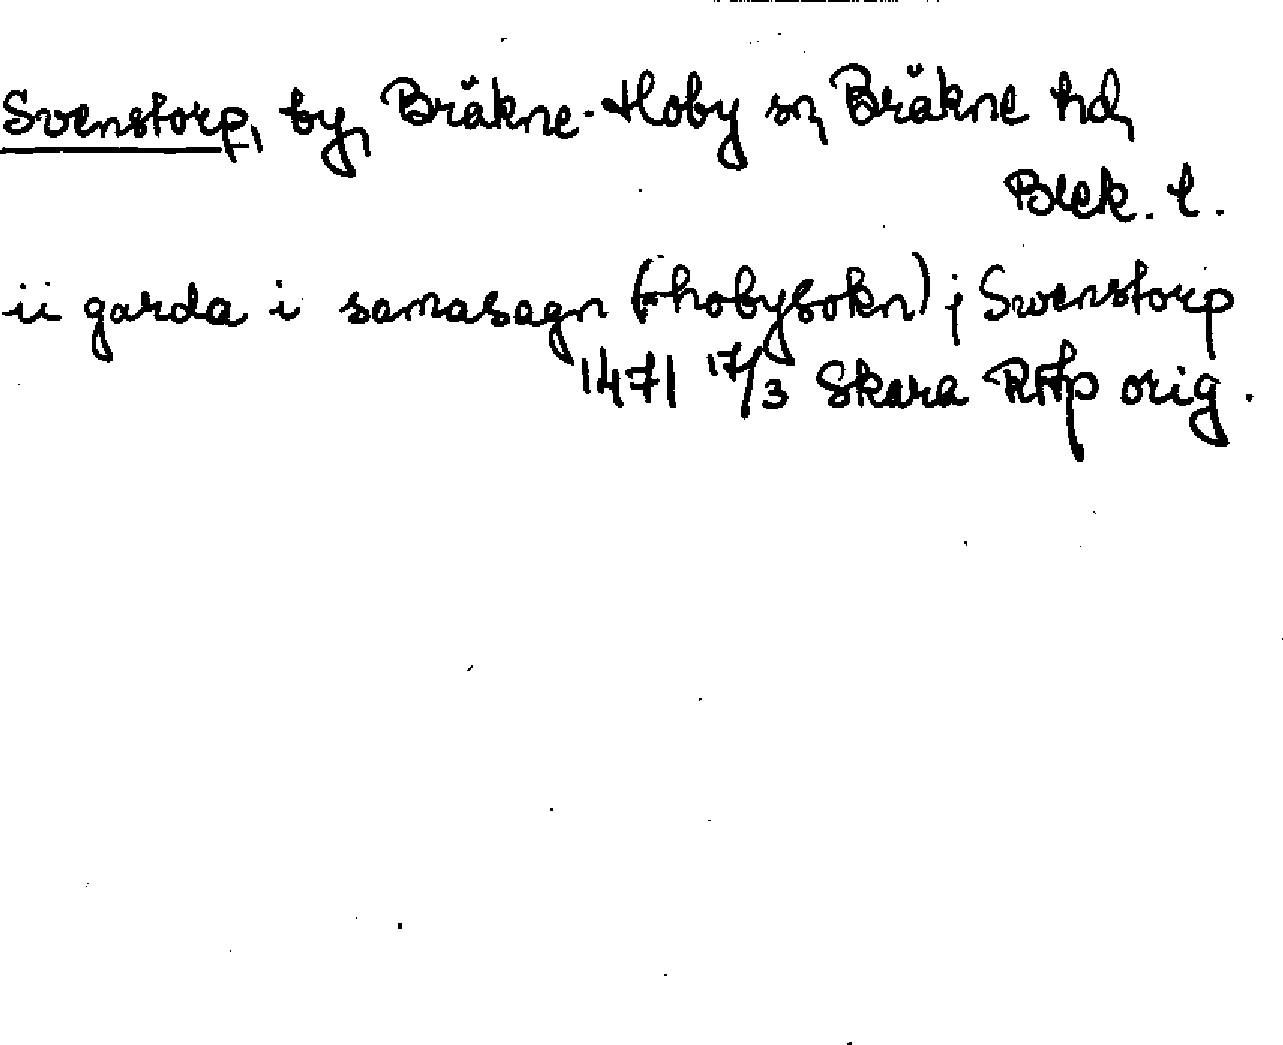 Svenstorp, by, Bräkne-Hoby sn, Bräkne hd,
Blek. l.
ii garda i samasogn (-hobysokn) j Swenstorp
1471 17/3 Skara RAp orig.